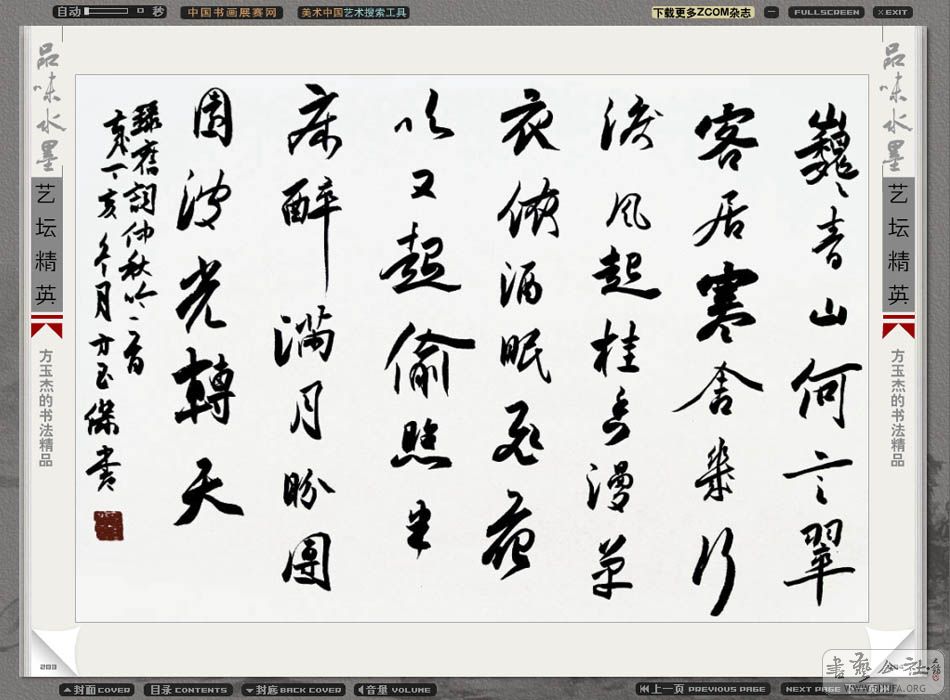 自动 秒 中国书画展赛网 美术中国艺术搜索工具 下载更多ZCOM杂志 FULLSCREEN ×EXIT
品味水墨
艺坛精英
方玉杰的书法精品
巍巍青山何言翠
客居寒舍幾行
淚风起桂香漫单
衣 酒眠
以又起偷照半
床醉满月盼团
圆波光轉天
錄舊詞仲秋吟一首
丁亥冬月方玉傑书
品味水墨
艺坛精英
方玉杰的书法精品
封面 COVER 目录 CONTENTS 封底 BACK COVER 音量 VOLUME 上一页 PREVIOUS PAGE NEXT PAGE
书艺公社